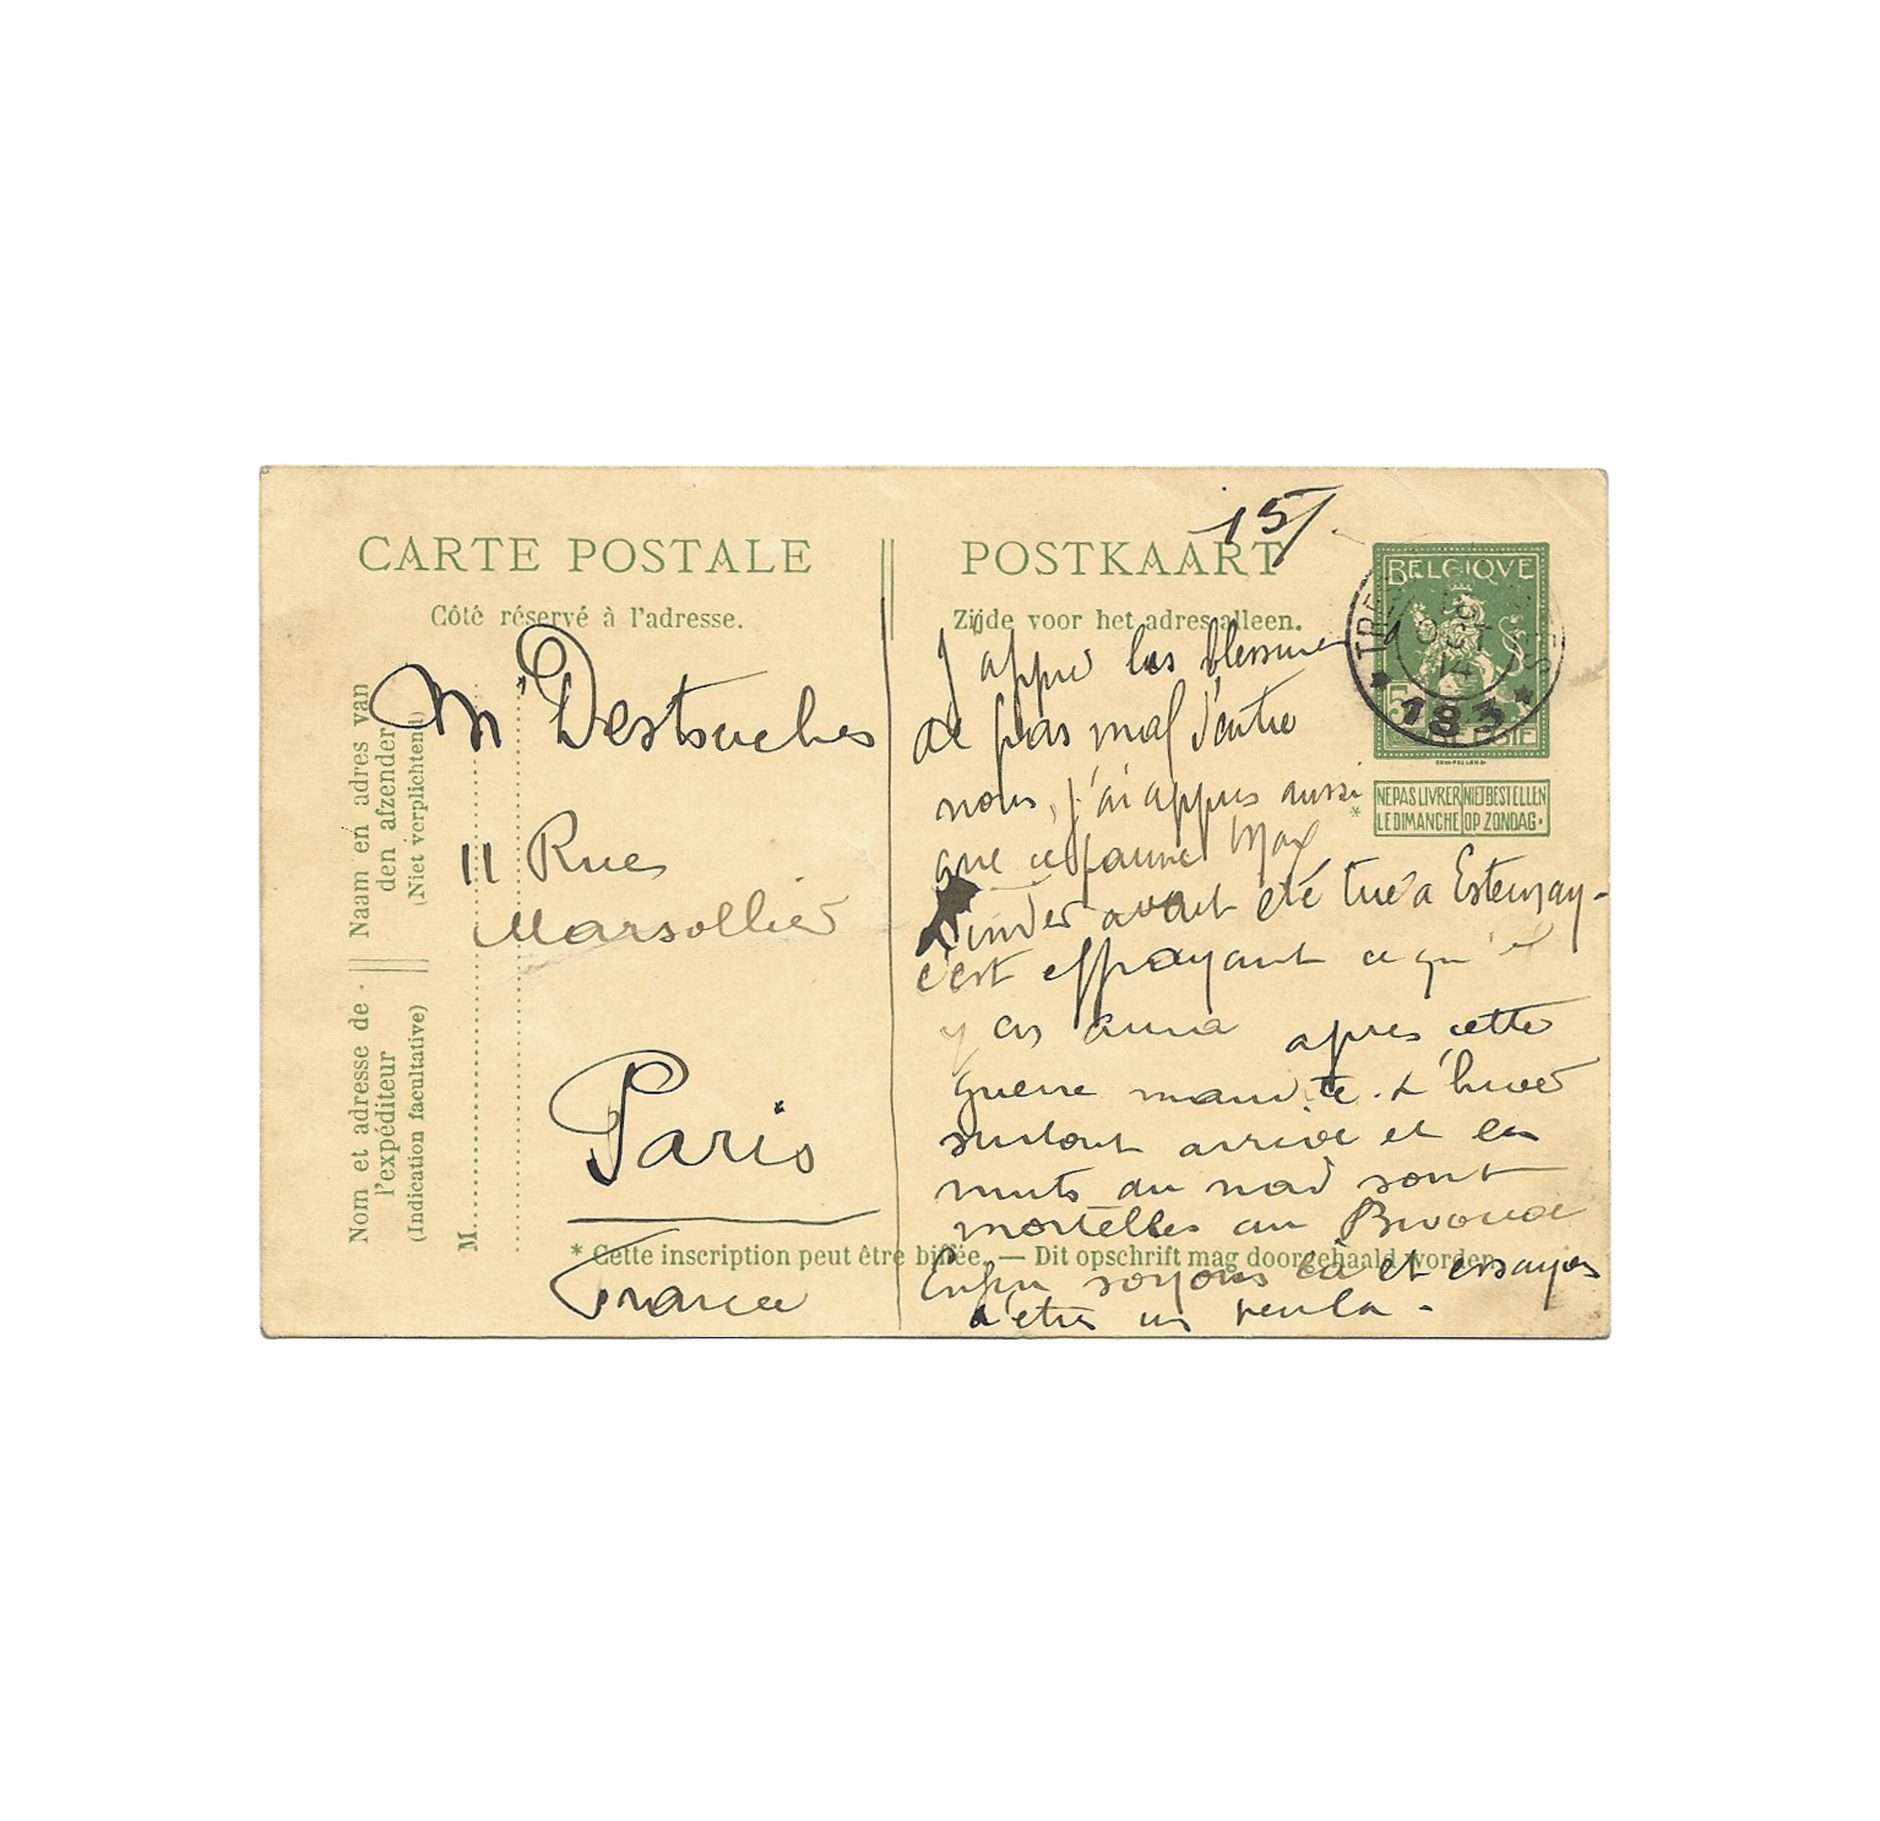 CARTE POSTALE
Côté réservé à l'adresse.
POSTKAART
Zijde voor het adres alleen.
15/.
BELGIQVE
5
BELGIE
TRE
183
NE PAS LIVRER LE DIMANCHE
NIET BESTELLEN OP ZONDAG.
*
Naam en adres van den afzender
(Niet verplichtend)
Nom et adresse de l'expéditeur
(Indication facultative)
M
M Destouches
11 Rue
Marsollier
Paris
France
J appris les blessures
de pas mal d'entre
nous, j'ai appris aussi
que ce pauvre Max
avait été tué a Esternay -
c'est effrayant ce qu'il
y en aura apres cette
guerre maudite. L'hiver
surtout arrive et les
nuits du nord sont
mortelles au Bivouac
Enfin soyons là et essayons
d'etre un peu la -
* Cette inscription peut être biffée. — Dit opschrift mag doorgehaald worden.